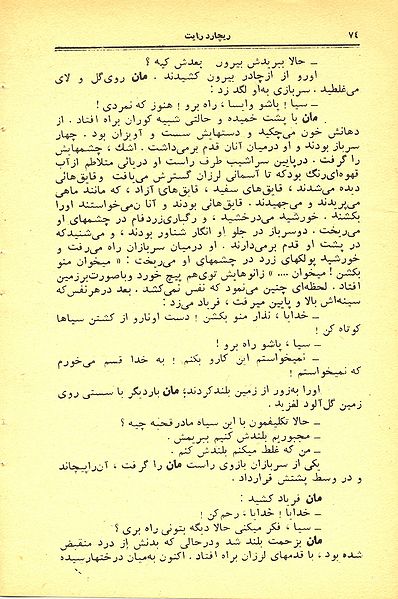 ۷۴
ریچارد رایت
ـ حالا ببریدش بیرون  بعدش کیه ؟
اورو از ازچادر بیرون کشیدند . مان روی گل و لای
می‌غلطید . سربازی به‌او لگد زد :
ـ سیا ! پاشو وایسا ، راه برو ! هنوز که نمردی !
مان با پشت خمیده و حالتی شبیه کوران براه افتاد . از
دهانش خون می‌چکید و دستهایش سست و آویزان بود . چهار
سرباز بودند و او درمیان آنان قدم برمی‌داشت . اشك ، چشمهایش
را گرفت . درپایین سراشیب طرف راست او دریائی متلاطم ازآب
قهوه‌ای‌رنگ بودکه تا آسمانی لرزان گسترش می‌یافت  وقایق‌هائی
دیده می‌شدند ، قایق‌های سفید ، قایق‌های آزاد ، که مانند ماهی
می‌پریدند و می‌جهیدند . قایق‌هائی بودند و آنا نمی‌خواستند اورا
بکشند . خورشید می‌درخشید ، و رگباری‌زردفام در چشمهای او
می‌ریخت . دوسرباز در جلو او انگار شناور بودند ، و می‌شنیدکه
در پشت او قدم برمی‌دارند . او درمیان سربازان راه می‌رفت و
خورشید پولکهای زرد در چشمهای او می‌ریخت : « میخوان منو
بکشن ! میخوان .... » زانوهایش توی‌هم پیچ خورد وباصورت‌برزمین
افتاد . لحظه‌ای چنین می‌نمود که نفس نمی‌کشد . بعد درهرنفس‌که
سینه‌اش بالا و پایین میرفت ، فریاد می‌زد :
ـ خدایا ، نذار منو بکشن ! دست اونارو از کشتن سیاها
کوتاه کن !
ـ سیا ، پاشو راه برو !
ـ نمیخواستم این کارو بکنم ! به خدا قسم می‌خورم
که نمیخواستم !
اورا به‌زور از زمین بلندکردند؛ مان باردیگر با سستی روی
زمین گل‌آلود لغزید .
ـ حالا تکلیفمون با این سیاه مادرقحبه چیه ؟
ـ مجبوریم بلندش کنیم ببریمش .
ـ من که غلط میکنم بلندش کنم .
یکی از سربازان بازوی راست مان را گرفت ، آن‌راپیچاند
و در وسط پشتش قرارداد .
مان فریاد کشید :
ـ خدایا ! خدایا ، رحم‌کن !
ـ سیا ، فکر میکنی حالا دیگه بتونی راه بری ؟
مان بزحمت بلند شد ودرحالی که بدنش از درد منقبض
شده بود ، با قدمهای لرزان براه افتاد . اکنون به‌میان درختهارسیده